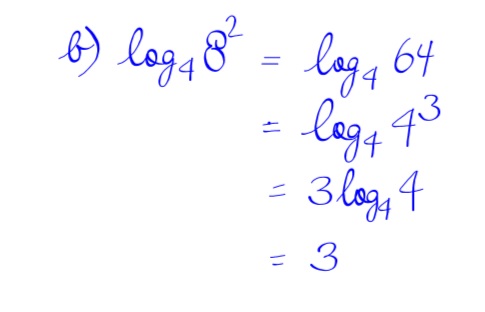 b) log₄ 8² = log₄ 64
= log₄ 4³
= 3 log₄ 4
= 3